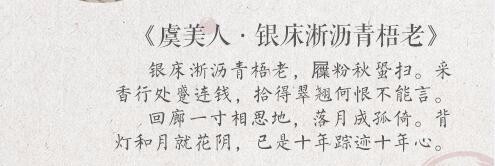 《虞美人·银床淅沥青梧老》
银床淅沥青梧老，屧粉秋蛩扫。采
香行处蹙连钱，拾得翠翘何恨不能言。
回廊一寸相思地，落月成孤倚。背
灯和月就花阴，已是十年踪迹十年心。